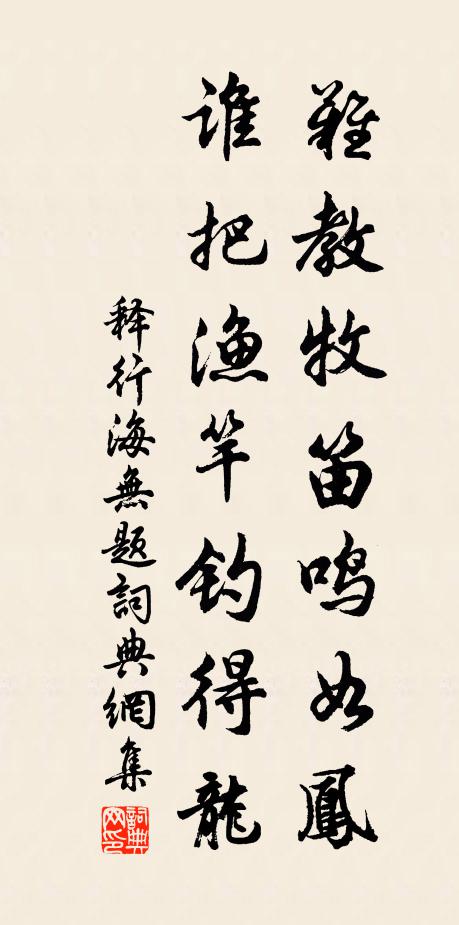 難教牧笛鳴如鳳
誰把漁竿釣得龍
释行海無题詞典網集
詞典网印